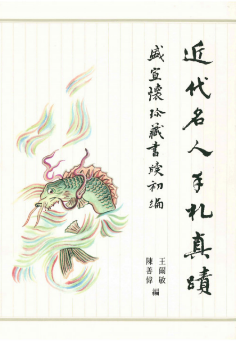 近代名人手札真蹟
盛宣懷珍藏書牘初編
王爾敏
陳善偉 編